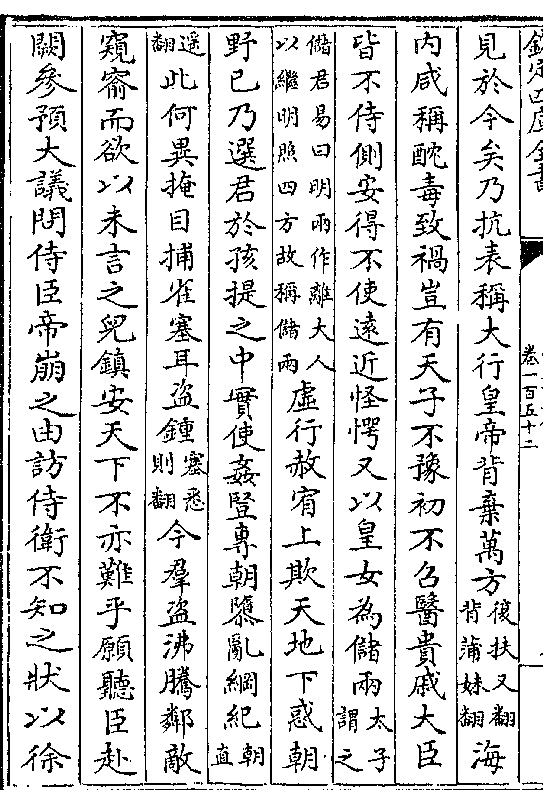 欽定四庫全書
卷一百五十二
見於今矣乃抗表稱大行皇帝背棄萬方復扶又翻背蒲妹翻海
内咸稱酖毒致禍豈有天子不豫初不召醫貴戚大臣
皆不侍側安得不使遠近怪愕又以皇女為儲兩太子謂之
儲君易曰明兩作離大人以繼明照四方故稱儲兩虚行赦宥上欺天地下惑朝
野已乃選君於孩提之中實使姦豎專朝隳亂綱紀朝直
遥翻此何異掩目捕雀塞耳盜鍾塞悉則翻今羣盜沸騰鄰敵
窺窬而欲以未言之兒鎮安天下不亦難乎願聽臣赴
闕參預大議問侍臣帝崩之由訪侍衛不知之狀以徐